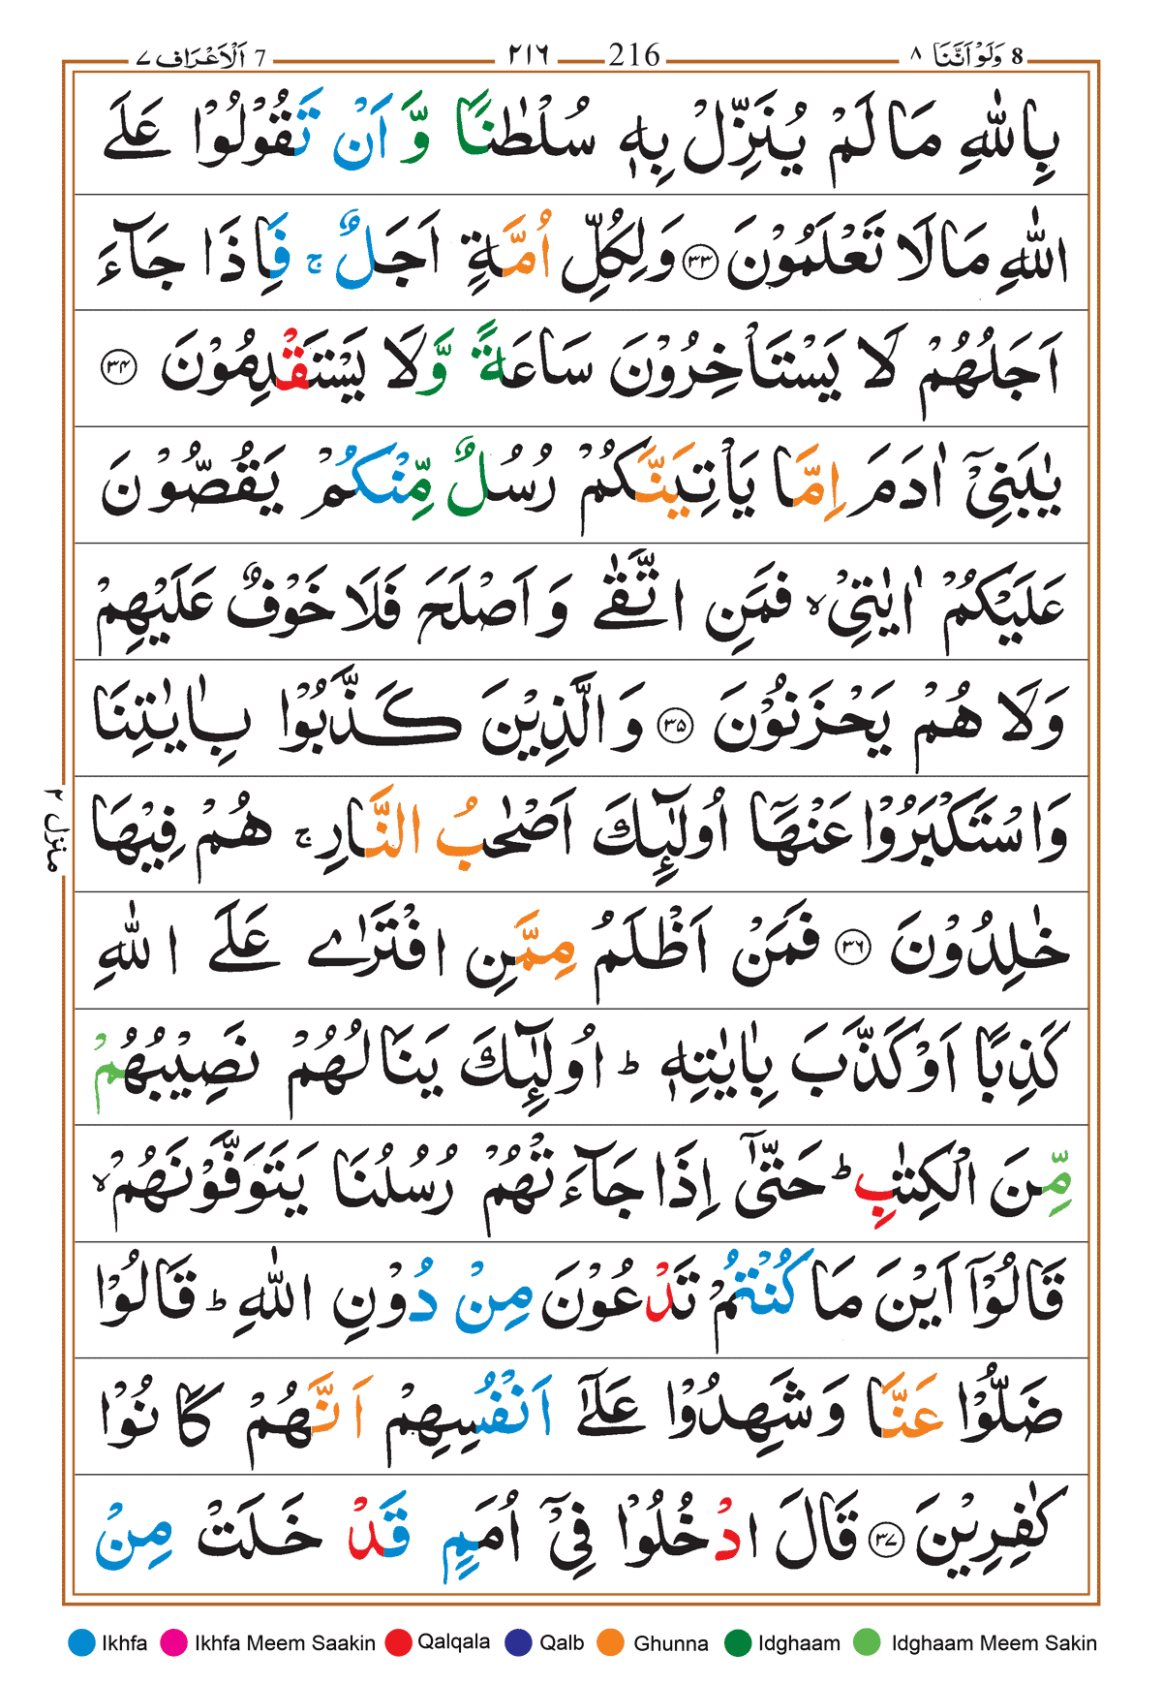 8 وَلَوْ اَنَّنَا ٨ 216 ٢١٦ 7 اَلْاَعْرَاف ٧
بِاللّٰهِ مَا لَمْ يُنَزِّلْ بِهٖ سُلْطٰنًا وَّ اَنْ تَقُوْلُوْا عَلَى
اللّٰهِ مَا لَا تَعْلَمُوْنَ ﴿٣٣﴾ وَلِكُلِّ اُمَّةٍ اَجَلٌ ۚ فَاِذَا جَآءَ
اَجَلُهُمْ لَا يَسْتَاْخِرُوْنَ سَاعَةً وَّلَا يَسْتَقْدِمُوْنَ ﴿٣٤﴾
يٰبَنِيْٓ اٰدَمَ اِمَّا يَاْتِيَنَّكُمْ رُسُلٌ مِّنْكُمْ يَقُصُّوْنَ
عَلَيْكُمْ اٰيٰتِيْ ۙ فَمَنِ اتَّقٰى وَ اَصْلَحَ فَلَا خَوْفٌ عَلَيْهِمْ
وَلَا هُمْ يَحْزَنُوْنَ ﴿٣٥﴾ وَالَّذِيْنَ كَذَّبُوْا بِاٰيٰتِنَا
وَاسْتَكْبَرُوْا عَنْهَآ اُولٰٓئِكَ اَصْحٰبُ النَّارِ ۚ هُمْ فِيْهَا
خٰلِدُوْنَ ﴿٣٦﴾ فَمَنْ اَظْلَمُ مِمَّنِ افْتَرٰى عَلَى اللّٰهِ
كَذِبًا اَوْ كَذَّبَ بِاٰيٰتِهٖ ؕ اُولٰٓئِكَ يَنَالُهُمْ نَصِيْبُهُمْ
مِّنَ الْكِتٰبِ ؕ حَتّٰٓى اِذَا جَآءَتْهُمْ رُسُلُنَا يَتَوَفَّوْنَهُمْ ۙ
قَالُوْٓا اَيْنَ مَا كُنْتُمْ تَدْعُوْنَ مِنْ دُوْنِ اللّٰهِ ؕ قَالُوْا
ضَلُّوْا عَنَّا وَشَهِدُوْا عَلٰٓى اَنْفُسِهِمْ اَنَّهُمْ كَانُوْا
كٰفِرِيْنَ ﴿٣٧﴾ قَالَ ادْخُلُوْا فِيْٓ اُمَمٍ قَدْ خَلَتْ مِنْ
منزل ٢
Ikhfa Ikhfa Meem Saakin Qalqala Qalb Ghunna Idghaam Idghaam Meem Sakin